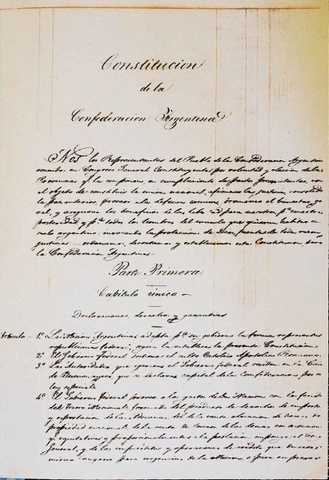 Constitucion
de la
Confederacion Argentina
Nos los Representantes del Pueblo de la Confederacion Argentina
reunidos en Congreso General Constituyente por voluntad y eleccion de las
Provincias que la componen, en cumplimiento de pactos preexistentes, con
el objeto de constituir la union nacional, afianzar la justicia, consolidar
la paz interior, proveer a la defensa comun, promover el bienestar gene
ral, y asegurar los beneficios de la libertad para nosotros, pa nuestra
posteridad y pa todos los hombres del mundo que quieran habitar en el
suelo argentino: invocando la proteccion de Dios, fuente de toda razon y
justicia: ordenamos, decretamos y establecemos esta Constitucion para
la Confederacion Argentina.
Parte Primera
Capitulo único
Declaraciones, derechos y garantias
Articulo 1º La Nacion Argentina adopta pa su gobierno la forma representativa
republicana federal, segun la establece la presente Constitucion
2º El Gobierno Federal sostiene el culto Católico Apostólico Romano.
3º Las Autoridades que ejercen el Gobierno federal residen en la Ciudad
de Buenos Ayres, que se declara capital de la Confederacion por una
ley especial
4º El Gobierno Federal provee a los gastos de la Nacion con los fondos
del Tesoro Nacional, formado del producto de derechos de importacion
y esportacion de
propiedad nacional, de la renta de Correos, de las demas contribuciones
que equitativa y proporcionalmente a la poblacion imponga el Congreso
General, y de los empréstitos y operaciones de crédito que decrete el
mismo Congreso para urgencias de la Nacion o para empresas